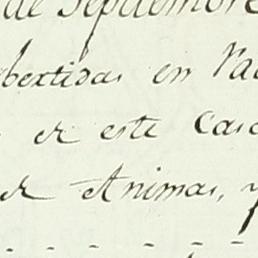 de Septiembre
bertidas en
en este Caso
de Animas, y